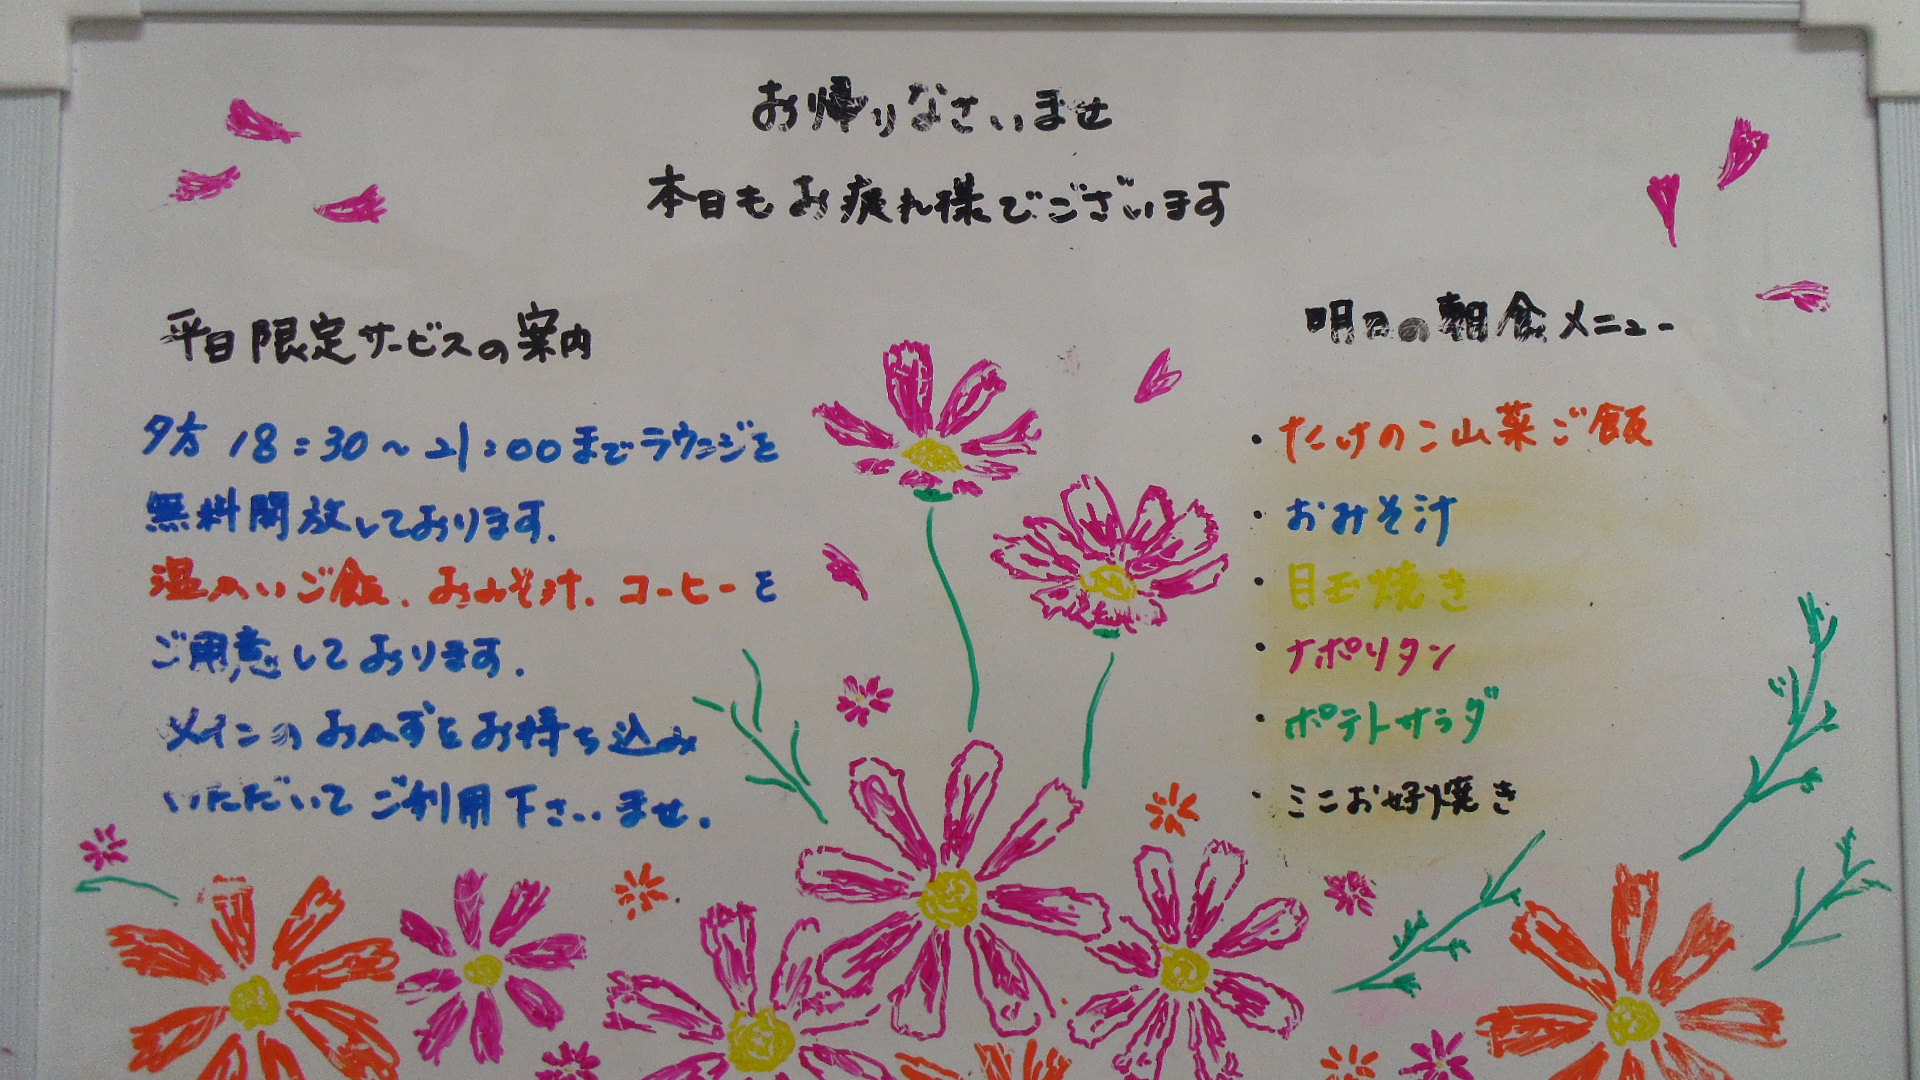 お帰りなさいませ
本日もお疲れ様でございます
平日限定サービスの案内
夕方 18:30～21:00までラウンジを
無料開放しております.
温かいご飯、おみそ汁、コーヒーを
ご用意しております.
メインのおかずをお持ち込み
いただいてご利用下さいませ.
明日の朝食メニュー
・たけのこ山菜ご飯
・おみそ汁
・目玉焼き
・ナポリタン
・ポテトサラダ
・ミニお好焼き